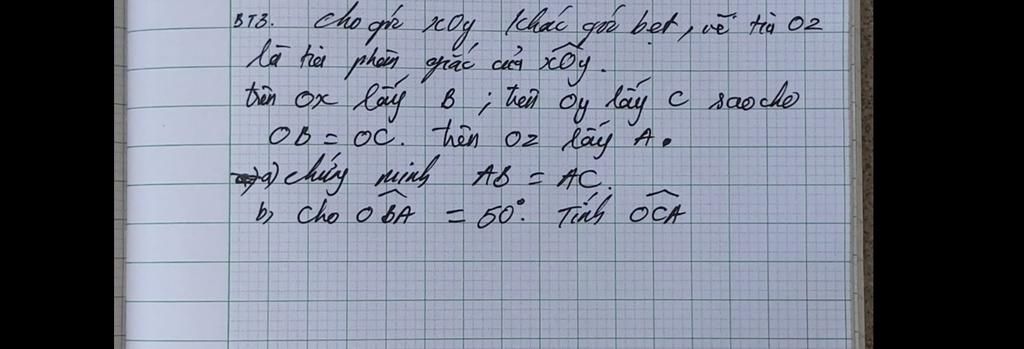 BT3. Cho góc xOy khác góc bẹt, vẽ tia Oz
là tia phân giác của xOy.
trên Ox lấy B ; trên Oy lấy C sao cho
OB = OC. trên Oz lấy A.
a) chứng minh AB = AC.
b) Cho OBA = 50°. Tính OCA